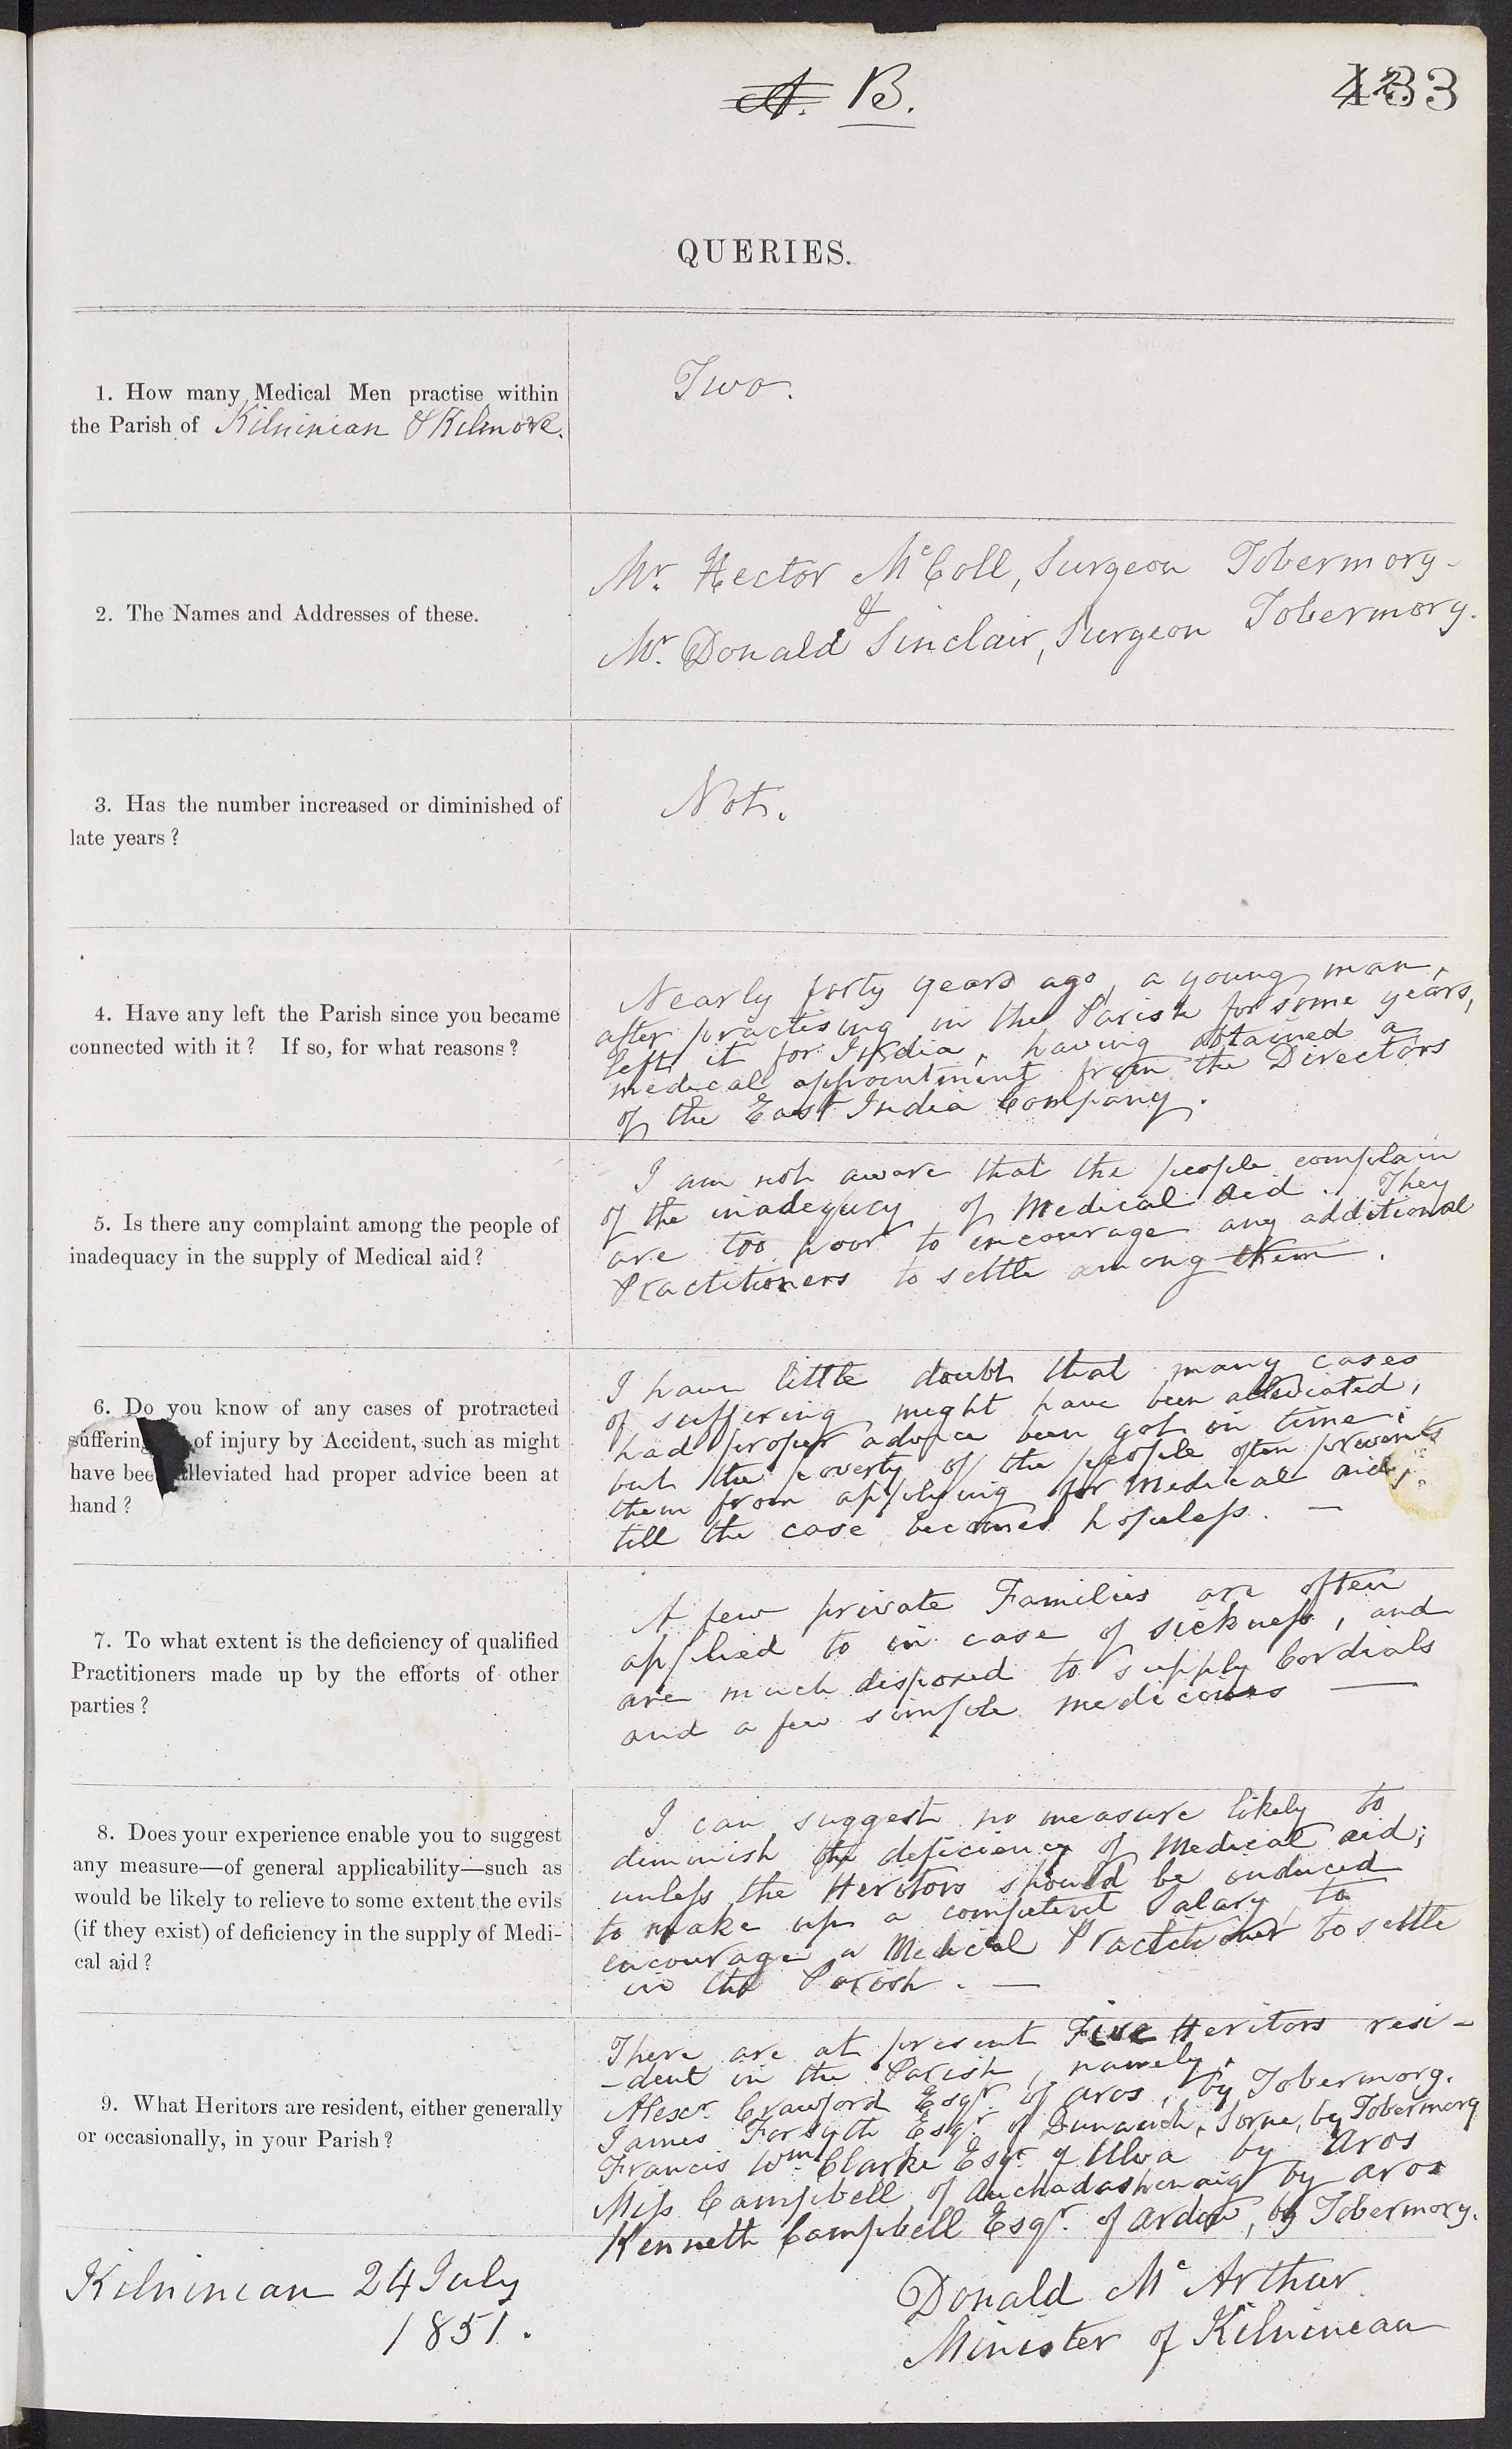 A. B.
433
QUERIES.
1. How many Medical Men practise within
the Parish of Kilninian & Kilmore.
Two.
2. The Names and Addresses of these.
Mr. Hector McColl, Surgeon Tobermory.
&
Mr. Donald Sinclair, Surgeon Tobermory.
3. Has the number increased or diminished of
late years?
Not.
4. Have any left the Parish since you became
connected with it? If so, for what reasons?
Nearly forty years ago, a young man,
after practising in the Parish for some years,
left it for India, having obtained a
medical appointment from the Directors
of the East India Company.
5. Is there any complaint among the people of
inadequacy in the supply of Medical aid?
I am not aware that the people complain
of the inadequcy of Medical Aid. They
are too poor to encourage any additional
Practitioners to settle among them.
6. Do you know of any cases of protracted
suffering of injury by Accident, such as might
have bee alleviated had proper advice been at
hand?
I have little doubt that many cases
of suffering might have been alleviated,
had proper advice been got in time;
but the poverty of the people often prevents
them from applying for Medical aid,
till the case becomes hopeless. —
7. To what extent is the deficiency of qualified
Practitioners made up by the efforts of other
parties?
A few private Families are often
applied to in case of sickness, and
are much disposed to supply Cordials
and a few simple medicines —
8. Does your experience enable you to suggest
any measure—of general applicability—such as
would be likely to relieve to some extent the evils
(if they exist) of deficiency in the supply of Medi-
cal aid?
I can suggest no measure likely to
diminish the deficiency of Medical aid;
unless the Heritors should be induced
to make up a competent Salary, to
encourage a Medical Practitioner to settle
in the Parish. —
9. What Heritors are resident, either generally
or occasionally, in your Parish?
There are at present Five Heritors resi-
-dent in the Parish, namely,
Alexr. Crawford Esqr. of Aros, by Tobermory.
James Forsyth Esqr. of Sorne, by Tobermory
Francis Wm Clarke Esqr. of Ulva by Aros
Miss Campbell of Auchadashenaig by Aros
Kenneth Campbell Esqr. of Ardow, by Tobermory.
Kilninian 24 July
1851.
Donald McArthur
Minister of Kilninian